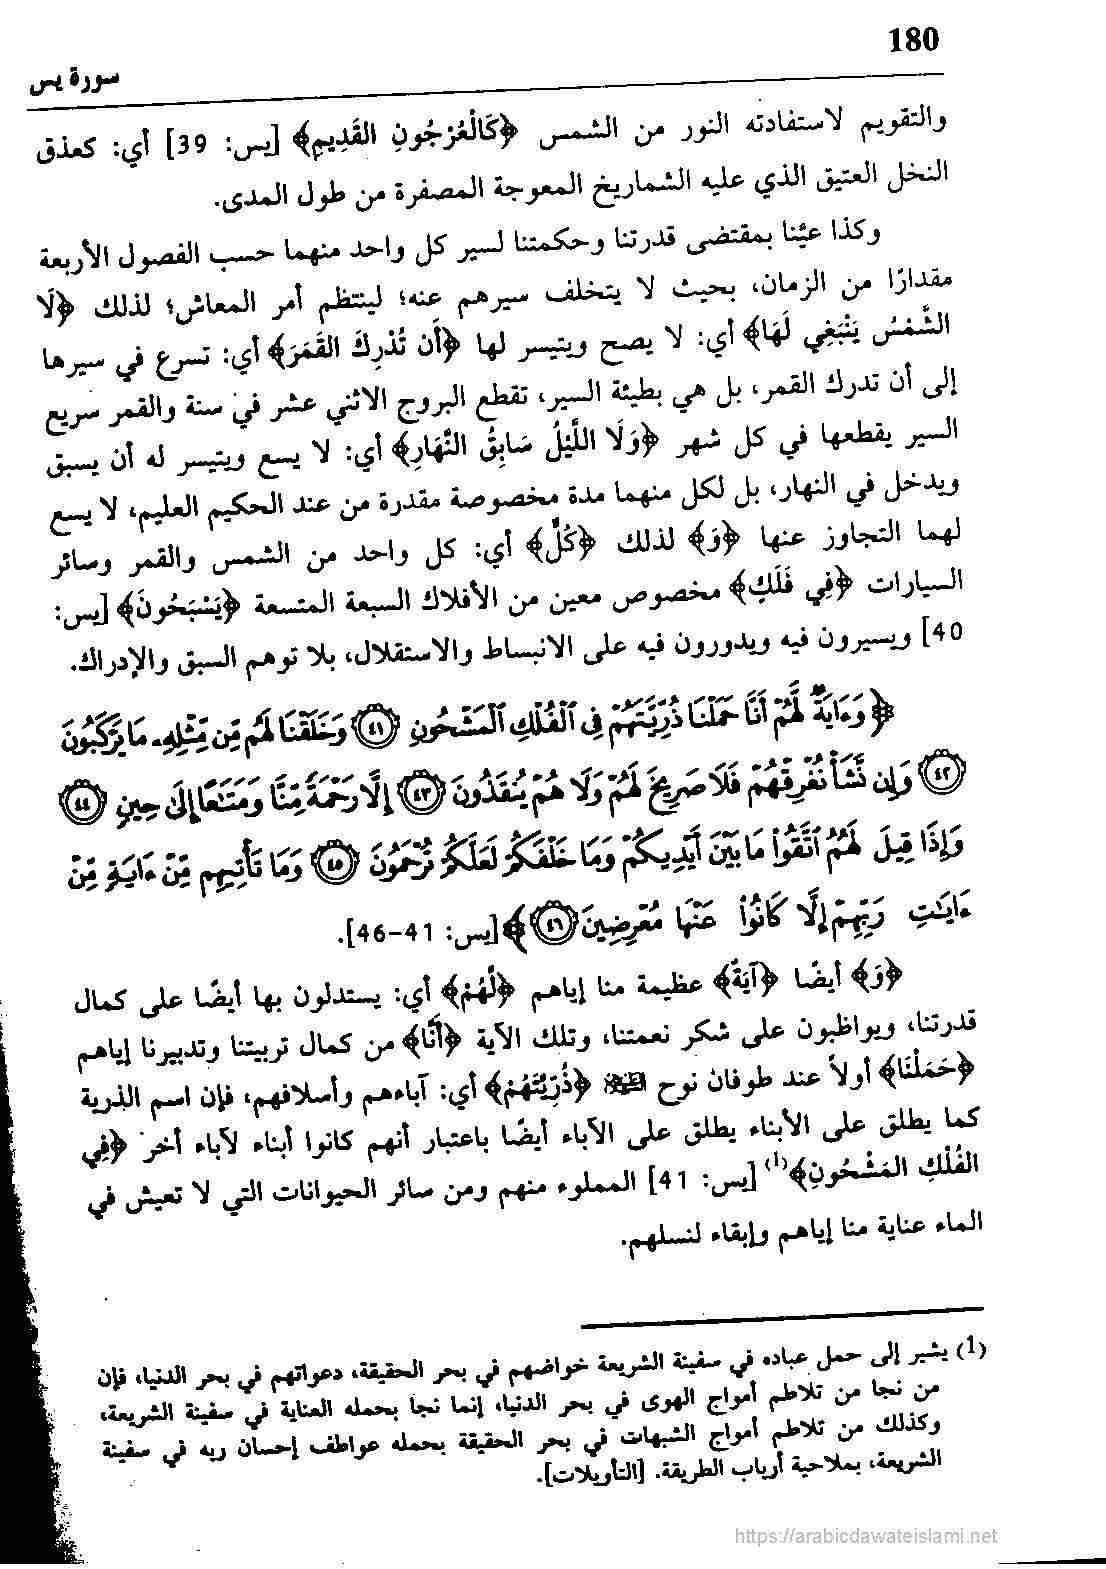 180
سورة يس
والتقويم لاستفادته النور من الشمس ﴿كَالْعُرْجُونِ القَدِيمِ﴾ [يس: 39] أي: كعذق
النخل العتيق الذي عليه الشماريخ المعوجة المصفرة من طول المدى.
وكذا عيَّنا بمقتضى قدرتنا وحكمتنا لسير كل واحد منهما حسب الفصول الأربعة
مقدارًا من الزمان، بحيث لا يتخلف سيرهم عنه؛ لينتظم أمر المعاش؛ لذلك ﴿لَا
الشَّمْسُ يَنْبَغِي لَهَا﴾ أي: لا يصح ويتيسر لها ﴿أَن تُدْرِكَ القَمَرَ﴾ أي: تسرع في سيرها
إلى أن تدرك القمر، بل هي بطيئة السير، تقطع البروج الاثني عشر في سنة والقمر سريع
السير يقطعها في كل شهر ﴿وَلَا اللَّيْلُ سَابِقُ النَّهَارِ﴾ أي: لا يسع ويتيسر له أن يسبق
ويدخل في النهار، بل لكل منهما مدة مخصوصة مقدرة من عند الحكيم العليم، لا يسع
لهما التجاوز عنها ﴿وَ﴾ لذلك ﴿كُلٌّ﴾ أي: كل واحد من الشمس والقمر وسائر
السيارات ﴿فِي فَلَكٍ﴾ مخصوص معين من الأفلاك السبعة المتسعة ﴿يَسْبَحُونَ﴾ [يس:
40] ويسيرون فيه ويدورون فيه على الانبساط والاستقلال، بلا توهم السبق والإدراك.
﴿وَءَايَةٌ لَّهُمْ أَنَّا حَمَلْنَا ذُرِّيَّتَهُمْ فِى ٱلْفُلْكِ ٱلْمَشْحُونِ ٤١ وَخَلَقْنَا لَهُم مِّن مِّثْلِهِۦ مَا يَرْكَبُونَ
٤٢ وَإِن نَّشَأْ نُغْرِقْهُمْ فَلَا صَرِيخَ لَهُمْ وَلَا هُمْ يُنقَذُونَ ٤٣ إِلَّا رَحْمَةً مِّنَّا وَمَتَٰعًا إِلَىٰ حِينٍ ٤٤
وَإِذَا قِيلَ لَهُمُ ٱتَّقُوا۟ مَا بَيْنَ أَيْدِيكُمْ وَمَا خَلْفَكُمْ لَعَلَّكُمْ تُرْحَمُونَ ٤٥ وَمَا تَأْتِيهِم مِّنْ ءَايَةٍ مِّنْ
ءَايَٰتِ رَبِّهِمْ إِلَّا كَانُوا۟ عَنْهَا مُعْرِضِينَ ٤٦﴾ [يس: 41-46].
﴿وَ﴾ أيضًا ﴿آيَةٌ﴾ عظيمة منا إياهم ﴿لَّهُمْ﴾ أي: يستدلون بها أيضًا على كمال
قدرتنا، ويواظبون على شكر نعمتنا، وتلك الآية ﴿أَنَّا﴾ من كمال تربيتنا وتدبيرنا إياهم
﴿حَمَلْنَا﴾ أولاً عند طوفان نوح ﷺ ﴿ذُرِّيَّتَهُمْ﴾ أي: آباءهم وأسلافهم، فإن اسم الذرية
كما يطلق على الأبناء يطلق على الآباء أيضًا باعتبار أنهم كانوا أبناء لآباء أخر ﴿فِي
الفُلْكِ المَشْحُونِ﴾(1) [يس: 41] المملوء منهم ومن سائر الحيوانات التي لا تعيش في
الماء عناية منا إياهم وإبقاء لنسلهم.
(1) يشير إلى حمل عباده في سفينة الشريعة خواضهم في بحر الحقيقة، دعواتهم في بحر الدنيا، فإن
من نجا من تلاطم أمواج الهوى في بحر الدنيا، إنما نجا بحمله العناية في سفينة الشريعة،
وكذلك من تلاطم أمواج الشبهات في بحر الحقيقة بحمله عواطف إحسان ربه في سفينة
الشريعة، بملاحية أرباب الطريقة. [التأويلات].
https://arabicdawateislami.net